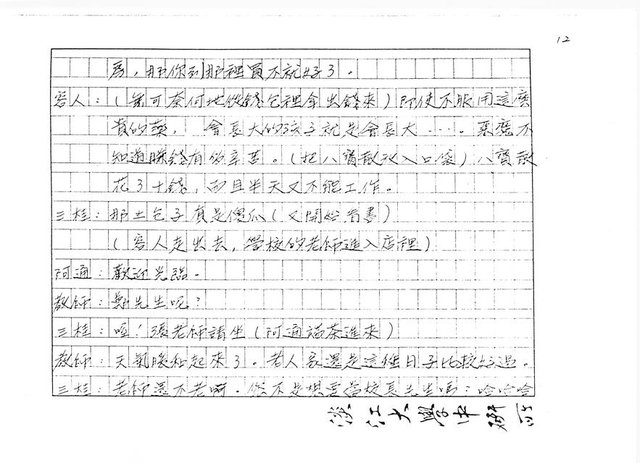 12
馬,那你到那裡買不就好了。
客人:(無可奈何地從錢包裡拿出錢來)即使不服用這麼
貴的藥, 會長大的孩子就是會長大……。菜摩不
知道賺錢有多辛苦。(把八寶散放入口袋)八寶散
花了十錢,而且半天又不能工作。
三桂:那土包子真是傻瓜(又開始看書)
(客人走出去,學校的老師進入店裡)
阿通:歡迎光臨。
教師:鄭先生呢?
三桂:喧!張老師請坐(阿通端茶進來)
教師:天氣暖和起來了。老人家還是這種日子比較好過。
三桂:老師還不老啊。你不是想當校長先生嗎?哈哈哈
淡江大學中研所